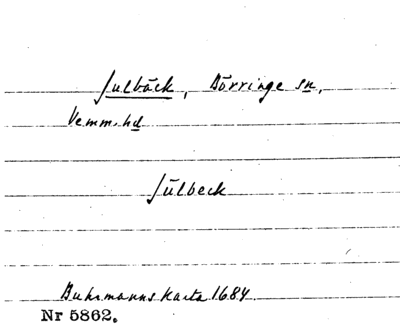 Julbäck, Börringe sn,
Vemm. hd
Jülbeck
Buhrmanns Karta 1684
Nr 5862.